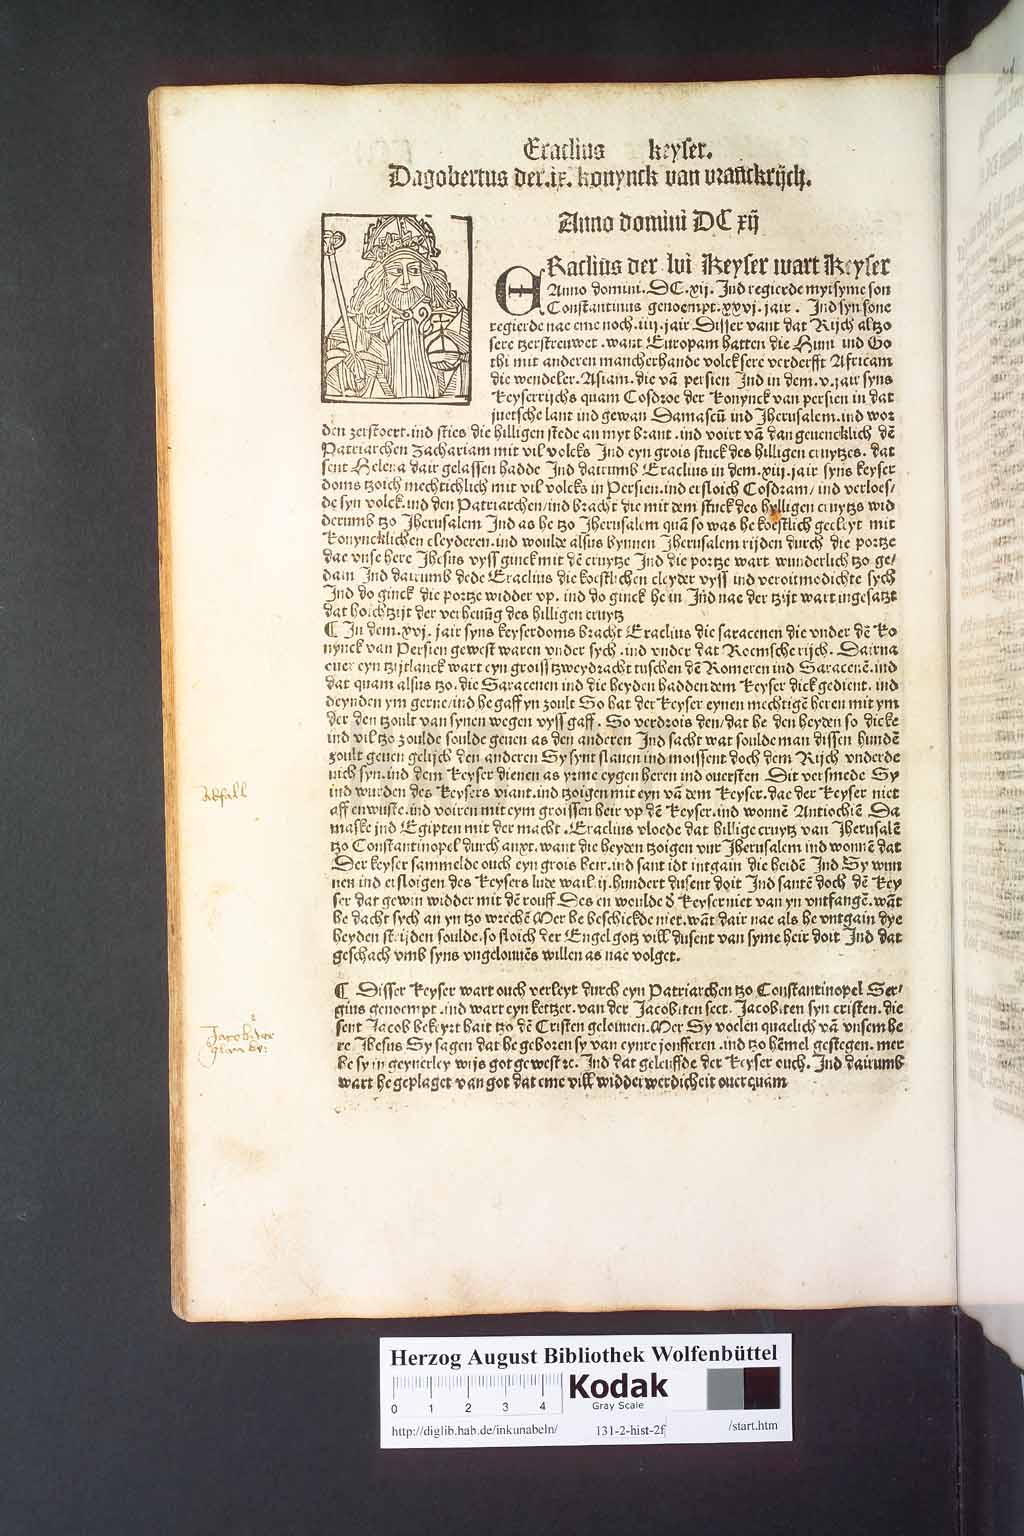 Eraclius keyser.
Dagobertus der .ix. konynck van vranckrijch.
Anno domini DC xij
ERaclius der lvi Keyser wart Keyser
Anno domini .DC.xij. Ind regierde myt syme son
Constantinus genoempt .xxvj. jair . Ind syn sone
regierde nae eme noch .iiij. jair Disser vant dat Rijch altzo
sere tzerstreuwet . want Europam hatten die Huni ind Go
thi mit anderen mancherhande volck sere verderfft Africam
die wendeler . Asiam . die vā persien Ind in dem .v. jair syns
keyserrijchs quam Cosdroe der Konynck van persien in dat
juetsche lant ind gewan Damascū ind Jherusalem . ind wor
den zerstoert . ind sties die hilligen stede an myt brant . ind voirt vā dan geuencklich dē
Patriarchen Zachariam mit vil volcks Ind eyn grois stuck des hilligen cruytzes . dat
sent Helena dair gelassen hadde Ind dairumb Eraclius in dem .xiij. jair syns keyser
doms tzoich mechtichlich mit vil volcks in Persien . ind ersloich Cosdram / ind verloes/
de syn volck . ind den Patriarchen / ind bracht die mit dem stuck des hylligen cruytzs wid
derumb tzo Jherusalem Ind as he tzo Jherusalem quā so was he koestlich gecleyt mit
Konyncklichen cleyderen . ind woulde alsus bynnen Jherusalem rijden durch die portze
dae vnse here Jhesus vyss ginck mit dē cruytze Ind die portze wart wunderlich tzo ge/
dain Ind dairumb dede Eraclius die koestlichen cleyder vyss ind veroitmedichte sych
Ind do ginck die portze widder vp . ind do ginck he in Ind nae der tzijt wart ingesatzt
dat hoichtzijt der verheuūg des hilligen cruytz
¶ In dem .xvj. jair syns keyserdoms bracht Eraclius die saracenen die vnder dē Ko
nynck van Persien gewest waren vnder sych . ind vnder dat Roemsche rijch . Dairna
ouer eyn tzijtlanck wart eyn groiss tzweydracht tuschen dē Romeren ind Saracenē . ind
dat quam alsus tzo . die Saracenen ind die heyden hadden dem keyser dick gedient . ind
deynden ym gerne / ind he gaff yn zoult So hat der keyser eynen mechtigē heren mit ym
der den tzoult van synen wegen vyss gaff . So verdrois den / dat he den heyden so dicke
ind vil tzo zoulde soulde geuen as den anderen Ind sacht wat soulde man dissen hundē
zoult geuen gelijch den anderen Sy synt slauen ind moissent doch dem Rijch vnderde
nich syn . ind dem keyser dienen as yrme eygen heren ind ouersten Dit versmede Sy
ind wurden des keysers viant . ind tzoigen mit eyn vā dem keyser . dae der keyser niet
aff en wuste . ind voiren mit eym groissen heir vp dē keyser . ind wonnē Antiochiē Da
maske jnd Egipten mit der macht . Eraclius vloede dat hillige cruytz van Jherusalē
tzo Constantinopel durch anxt . want die heyden tzoigen vur Jherusalem ind wonnē dat
Der keyser sammelde ouch eyn grois heir . ind sant idt intgain die heidē Ind Sy wun
nen ind ersloigen des keysers lude wail .ij. hundert dusent doit Ind santē doch dē key
ser dat gewin widder mit dē rouff Des en woulde d keyser niet van yn vntfangē . wāt
he dacht sych an yn tzo wrechē Mer he beschickde niet . wāt dair nae als he vntgain dye
heyden strijden soulde . so sloich der Engel gotz vill dusent van syme heir doit Ind dat
geschach vmb syns vngelouuēs willen as nae volget .
¶ Disser keyser wart ouch verleyt durch eyn Patriarchen tzo Constantinopel Ser/
gius genoempt . ind wart eyn kettzer . van der Jacobiten sect . Jacobiten syn cristen . die
sent Jacob bekeyrt hait tzo dē Cristen gelouuen . Mer Sy voelen quaelich vā vnsem he
re Jhesus Sy sagen dat he geboren sy van eynre jonfferen . ind tzo hēmel gestegen . mer
he sy in geynerley wijs got gewest zc . Ind dat geleuffde der keyser ouch . Ind dairumb
wart he geplaget van got dat eme vill widderwerdicheit ouerquam
Abfall
Jacobiter
glaube:
Herzog August Bibliothek Wolfenbüttel
0 1 2 3 4
Kodak
Gray Scale
http://diglib.hab.de/inkunabeln/ 131-2-hist-2f /start.htm